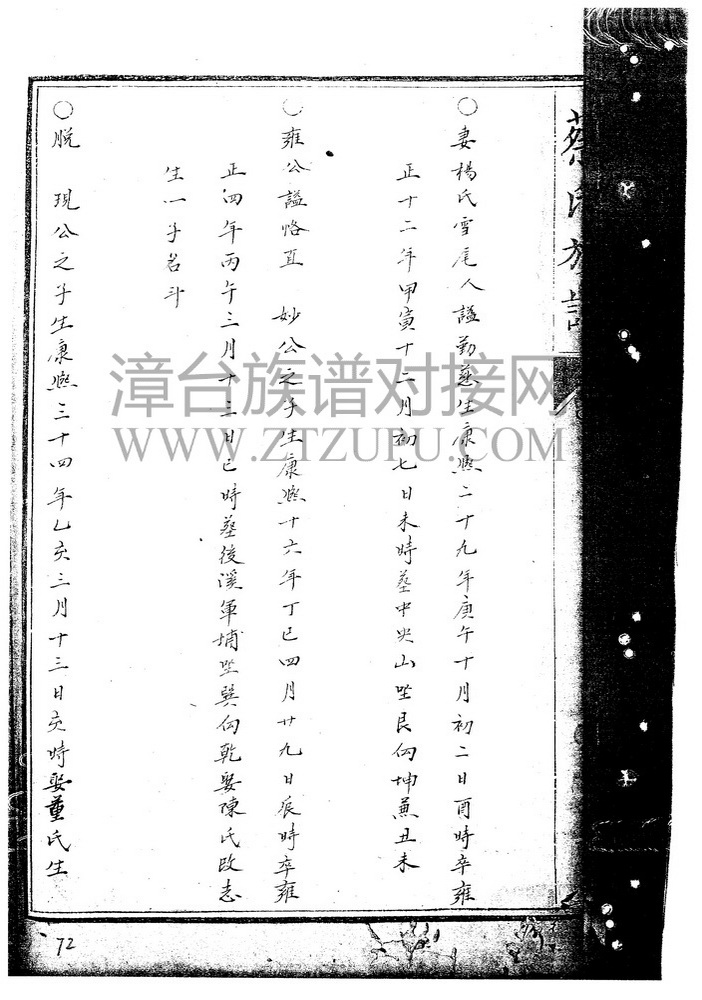 蔡氏族譜
○妻楊氏雪尾人謚勤慈生康熙二十九年庚午十月初二日酉時卒雍
正十二年甲寅十二月初七日未時葬中央山坐艮向坤兼丑未
○雍公謚恪直 妙公之子生康熙十六年丁巳四月廿九日辰時卒雍
正四年丙午三月十三日巳時葬後溪軍埔坐巽向乾娶陳氏改志
生一子名斗
○脱 現公之子生康熙三十四年乙亥三月十三日亥時娶董氏生
72
漳台族谱对接网
WWW.ZTZUPU.COM